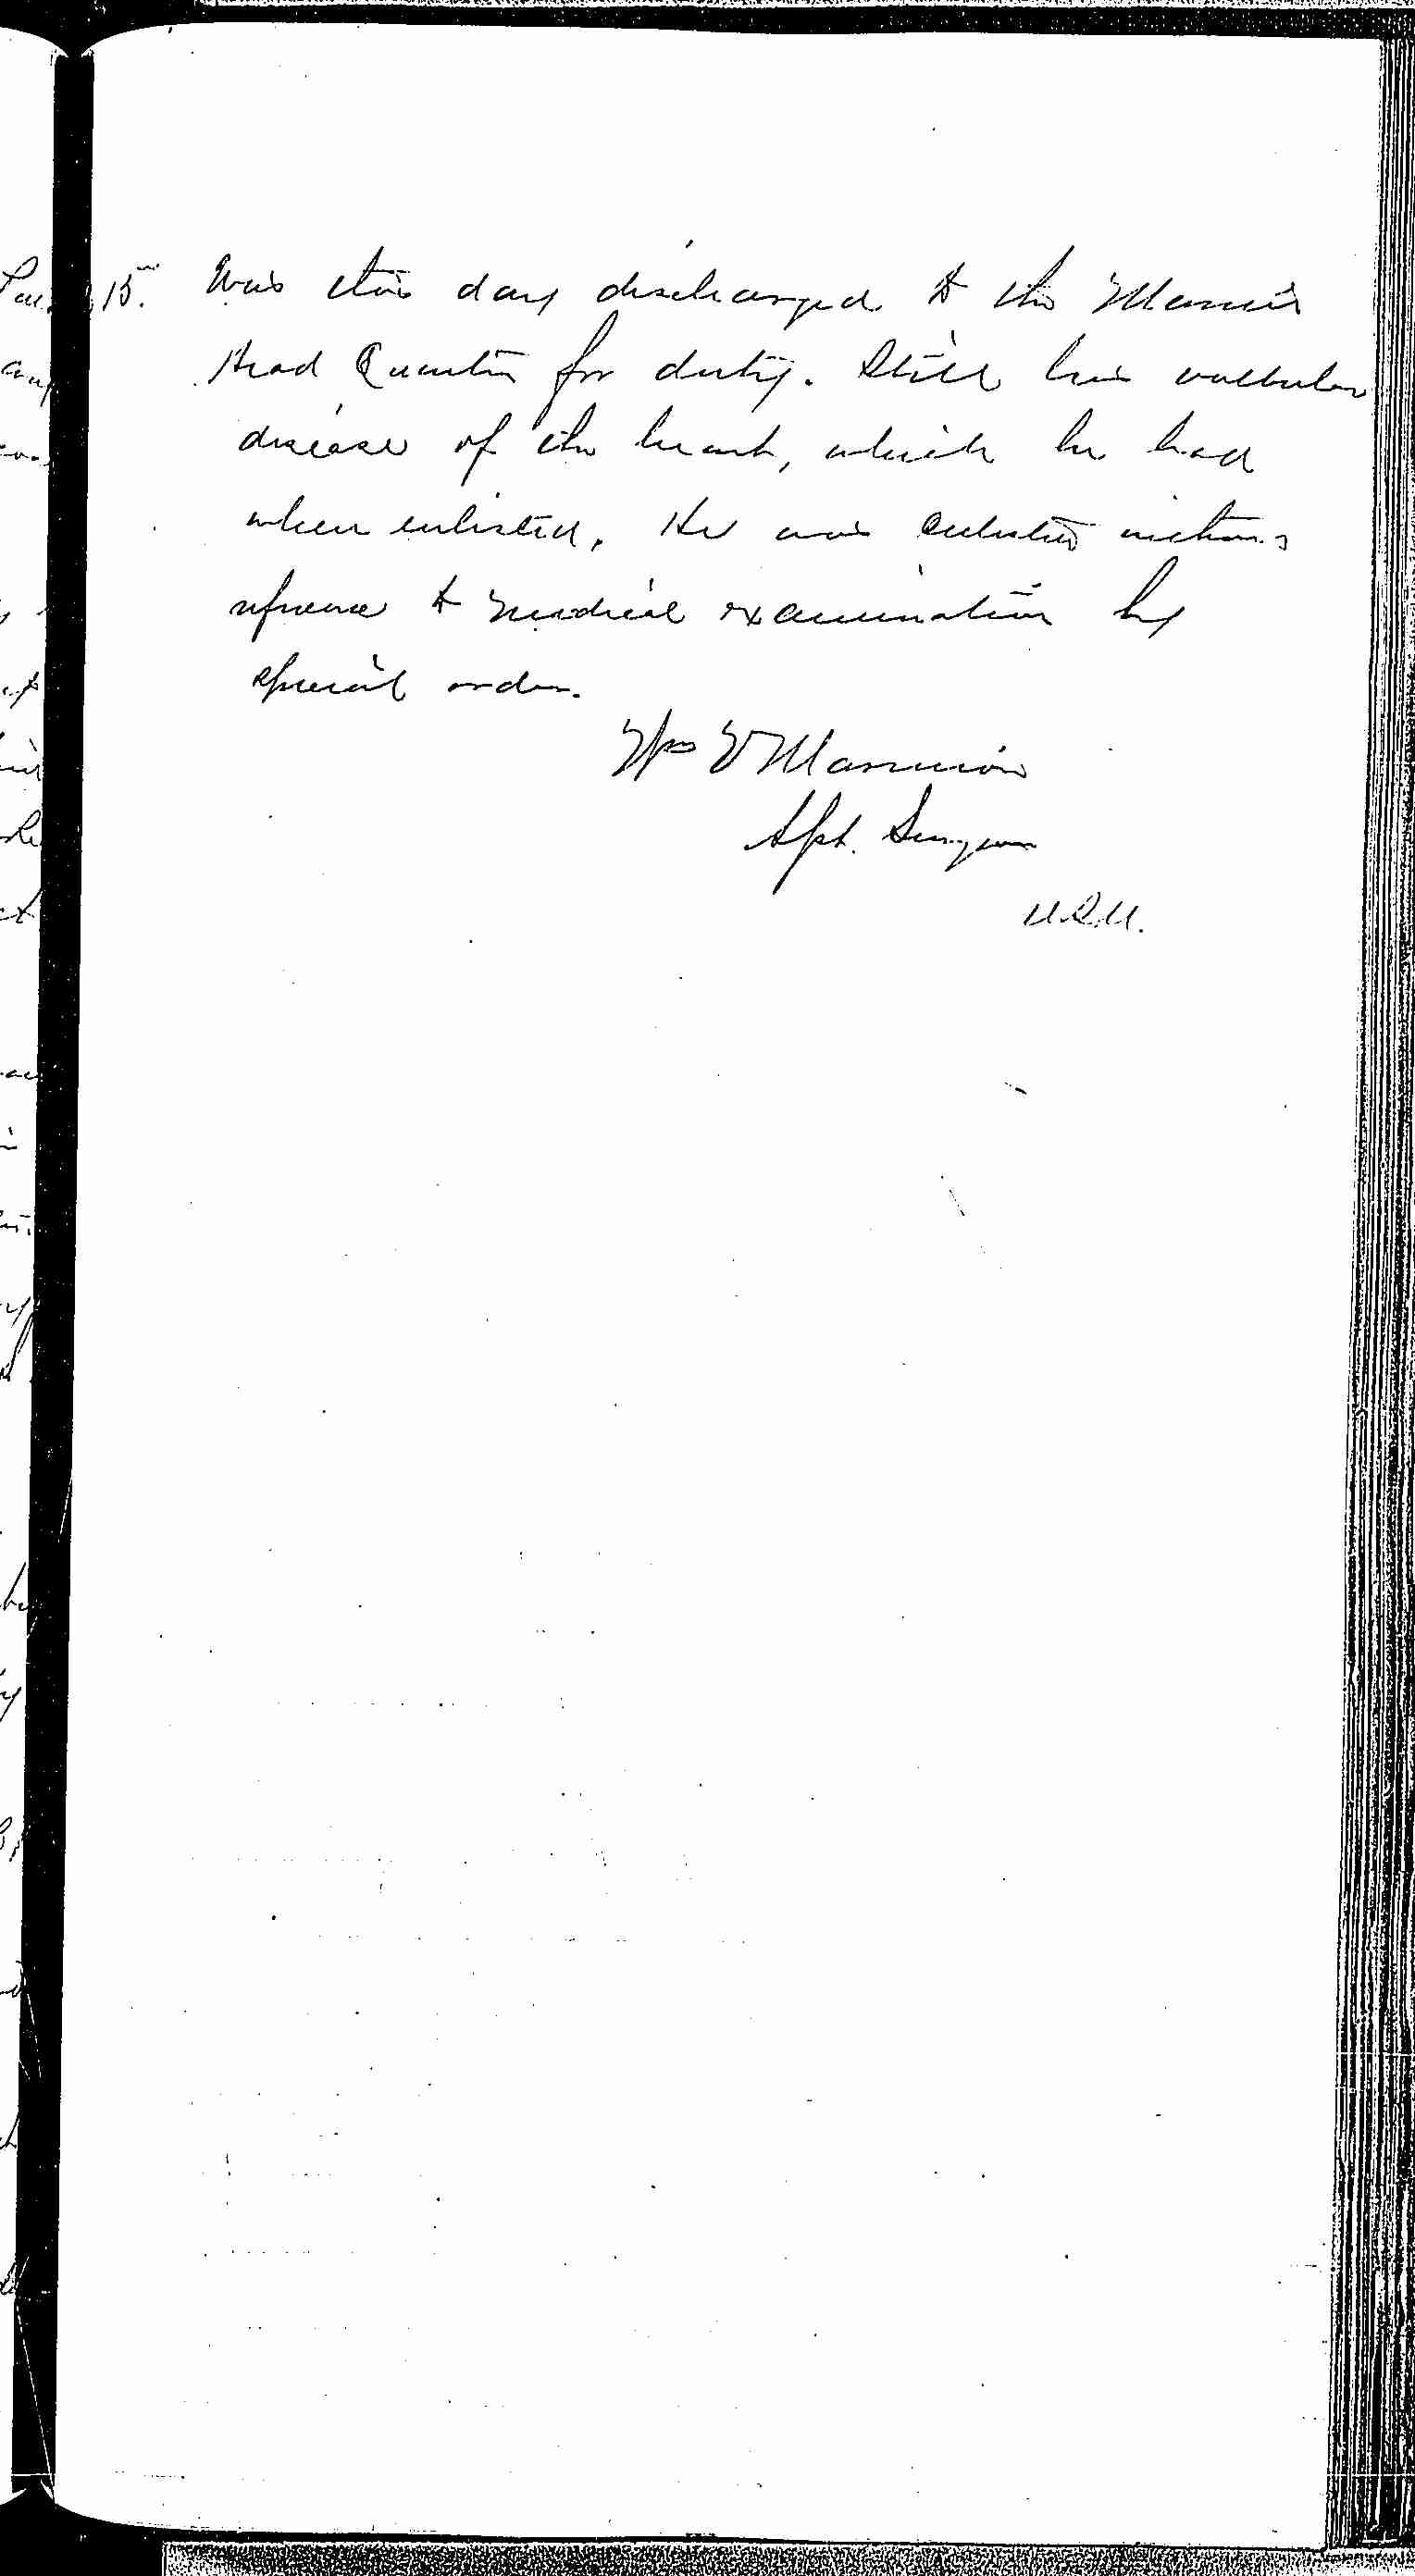 15. Was this day discharged to the Marine
Head Quarters for duty. Still has valvular
disease of the heart, which he had
when enlisted. He was enlisted without
reference to medical examination by
special order.
Wm V Marmion
Asst. Surgeon
U.S.N.